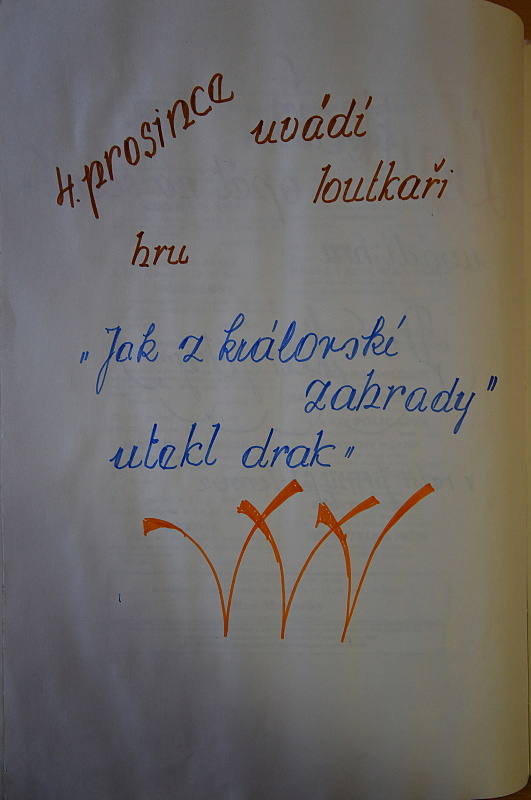 4. prosince
uvádí
loutkaři
hru
„Jak z králorskí
zahrady"
utekl drak"